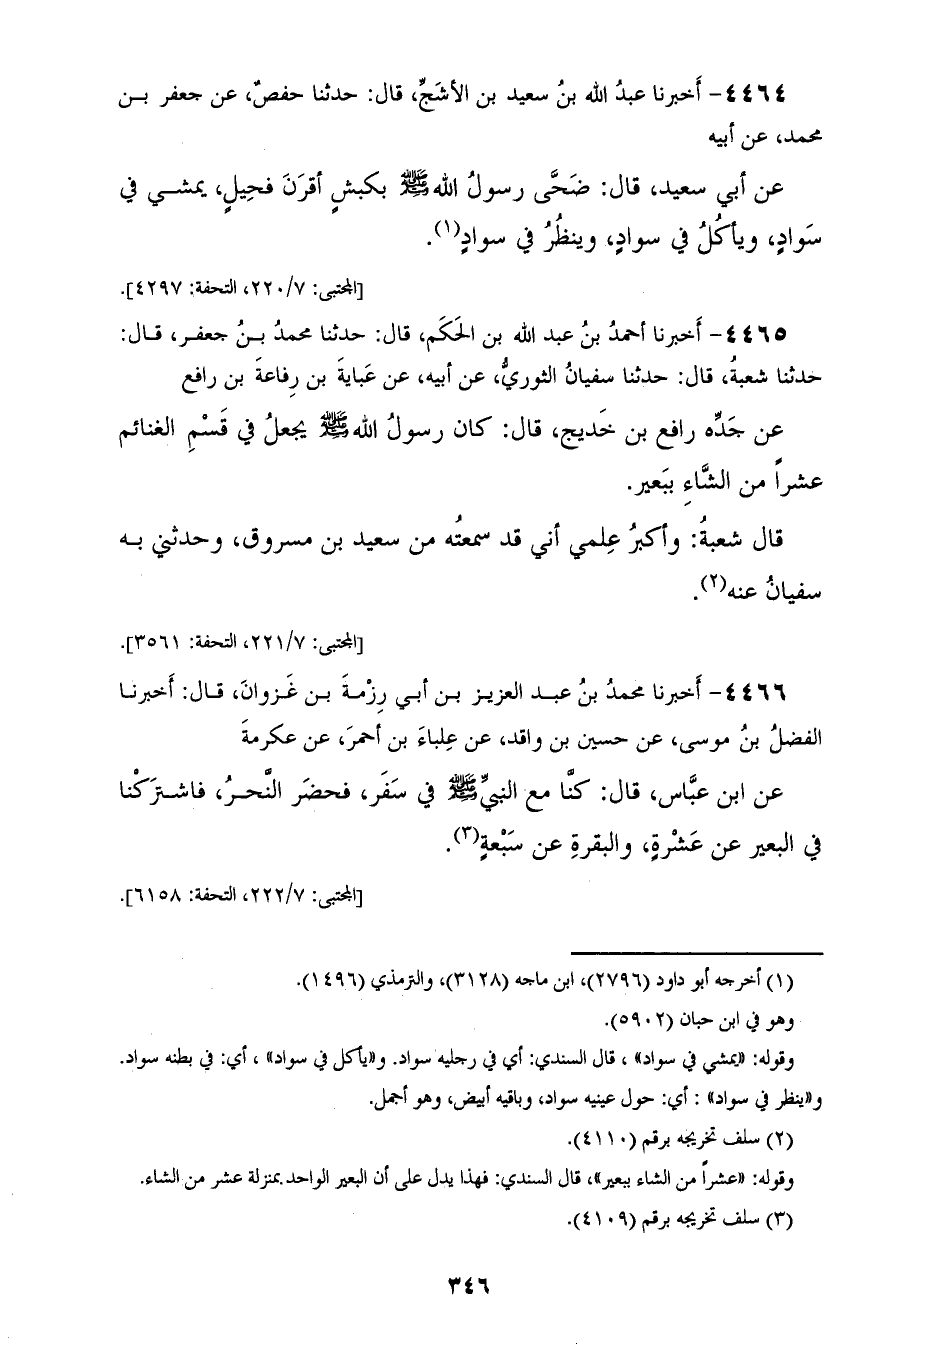 ٤٤٦٤- أَخبرنا عبدُ الله بنُ سعيد بن الأشَجِّ، قال: حدثنا حفصٌ، عن جعفر بن
محمد، عن أبيه
عن أبي سعيد، قال: ضَحَّى رسولُ الله ﷺ بكبشٍ أقرَنَ فحِيلٍ، يمشي في
سَوادٍ، ويأكُلُ في سوادٍ، وينظُرُ في سوادٍ(١).
[المجتبى: ٢٢٠/٧، التحفة: ٤٢٩٧].
٤٤٦٥- أَخبرنا أحمدُ بنُ عبد الله بن الحَكَم، قال: حدثنا محمدُ بنُ جعفر، قال:
حدثنا شعبةُ، قال: حدثنا سفيانُ الثوريُّ، عن أبيه، عن عَبايةَ بن رِفاعةَ بن رافع
عن جَدِّه رافع بن خَديج، قال: كان رسولُ الله ﷺ يجعلُ في قَسْمِ الغنائم
عشراً من الشَّاءِ ببَعير.
قال شعبةُ: وأكبرُ عِلمي أني قد سمعتُه من سعيد بن مسروق، وحدثني به
سفيانُ عنه(٢).
[المجتبى: ٢٢١/٧، التحفة: ٣٥٦١].
٤٤٦٦- أَخبرنا محمدُ بنُ عبد العزيز بن أبي رِزْمةَ بن غَزوانَ، قال: أَخبرنا
الفضلُ بنُ موسى، عن حسين بن واقد، عن عِلباءَ بن أحمرَ، عن عكرمةَ
عن ابن عبَّاس، قال: كنَّا مع النبيِّ ﷺ في سَفَر، فحضَر النَّحرُ، فاشتركْنا
في البعير عن عَشْرةٍ، والبقرةِ عن سَبْعةٍ(٣).
[المجتبى: ٢٢٢/٧، التحفة: ٦١٥٨].
(١) أخرجه أبو داود (٢٧٩٦)، ابن ماجه (٣١٢٨)، والترمذي (١٤٩٦).
وهو في ابن حبان (٥٩٠٢).
وقوله: «يمشي في سواد» ، قال السندي: أي في رجليه سواد. و«يأكل في سواد» ، أي: في بطنه سواد.
و«ينظر في سواد» : أي: حول عينيه سواد، وباقيه أبيض، وهو أجمل.
(٢) سلف تخريجه برقم (٤١١٠).
وقوله: «عشراً من الشاء ببعير»، قال السندي: فهذا يدل على أن البعير الواحد بمنزلة عشر من الشاء.
(٣) سلف تخريجه برقم (٤١٠٩).
٣٤٦